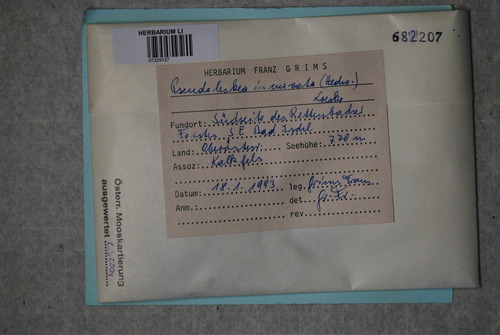 HERBARIUM LI
01229127
682207
HERBARIUM FRANZ GRIMS
Pseudoleskea incurvata (Hedw.)
Loeske
Fundort: Südseite des Rettenbach
Forstes SE Bad Ischl
Land: Oberösterr. Seehöhe: 770 m
Assoz: Kalkfels
Datum: 18.1.1993 leg. Grims Franz
Anm.: det. Gr. Fr.
rev.
Österr. Mooskartierung
ausgewertet